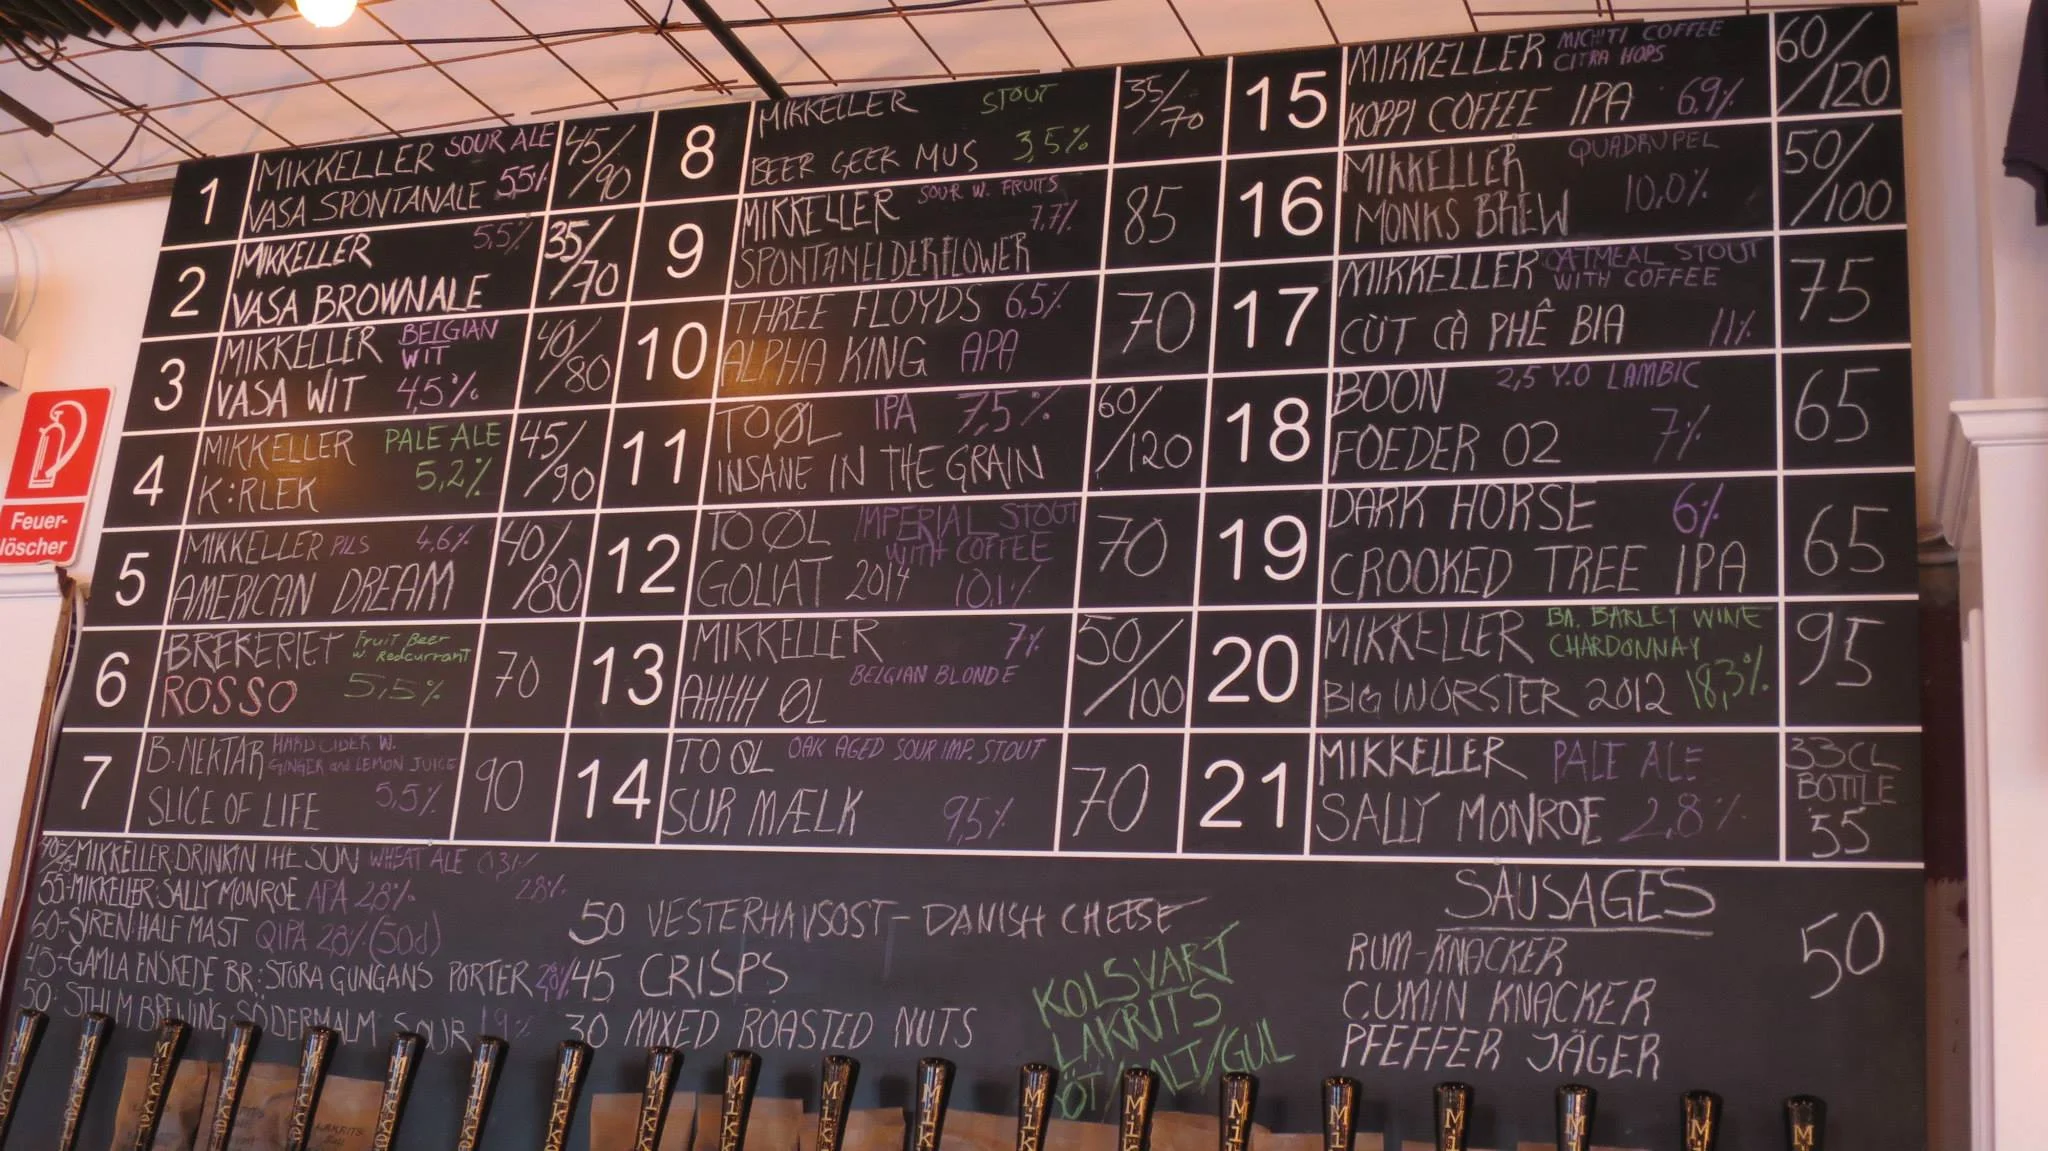 1 MIKKELLER SOUR ALE 45/90
VASA SPONTANALE 5,5%
2 MIKKELLER 5,5% 35/70
VASA BROWNALE
3 MIKKELLER BELGIAN WIT 40/80
VASA WIT 4,5%
4 MIKKELLER PALE ALE 45/90
K:RLEK 5,2%
5 MIKKELLER PILS 4.6% 40/80
AMERICAN DREAM
6 BREKERIET Fruit Beer w. Redcurrant 70
ROSSO 5,5%
7 B.NEKTAR HARD CIDER W. GINGER and LEMON JUICE 90
SLICE OF LIFE 5,5%
8 MIKKELLER STOUT 35/70
BEER GEEK MUS 3,5%
9 MIKKELLER SOUR W. FRUITS 7,7% 85
SPONTANELDERFLOWER
10 THREE FLOYDS 6,5% 70
ALPHA KING APA
11 TO ØL IPA 7,5% 60/120
INSANE IN THE GRAIN
12 TO ØL IMPERIAL STOUT WITH COFFEE 70
GOLIAT 2014 10,1%
13 MIKKELLER 7% 50/100
BELGIAN BLONDE
AHHH ØL
14 TO ØL OAK AGED SOUR IMP. STOUT 70
SUR MÆLK 9,5%
15 MIKKELLER COFFEE CITRA HOPS 60/120
KOPPI COFFEE IPA 6.9%
16 MIKKELLER QUADRUPEL 50/100
MONKS BREW 10,0%
17 MIKKELLER OATMEAL STOUT WITH COFFEE 75
CÙT CÀ PHÊ BIA 11%
18 BOON 2,5 Y.O LAMBIC 65
FOEDER 02 7%
19 DARK HORSE 6% 65
CROOKED TREE IPA
20 MIKKELLER BA. BARLEY WINE CHARDONNAY 95
BIG WORSTER 2012 18,3%
21 MIKKELLER PALE ALE 33CL BOTTLE 55
SALLY MONROE 2,8%
MIKKELLER: DRINKIN THE SUN WHEAT ALE 0,3%
2,8%
55-MIKKELLER: SALLY MONROE APA 2,8%
60-SIREN: HALF MAST QIPA 2,8% (50cl)
45-GAMLA ENSKEDE BR: STORA GUNGANS PORTER 2,8%
50: STHLM BREWING: SÖDERMALM SOUR
50 VESTERHAVSOST - DANISH CHEESE
45 CRISPS
30 MIXED ROASTED NUTS
KOLSVART
LAKRITS
SAUSAGES
RUM-KNACKER 50
CUMIN KNACKER
PFEFFER JÄGER
Feuer-
löscher